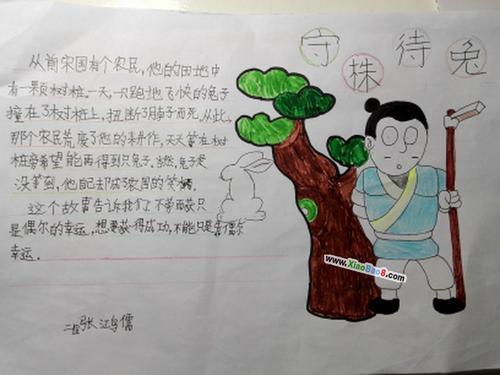 守株待兔
从前宋国有个农民，他的田地中
有一颗树桩，一天，一只跑地飞快的兔子
撞在了树桩上，扭断了脖子而死。从此，
那个农民荒废了他的耕作，天天等在树
桩旁希望能再得到只兔子。当然，兔子是
没等到，他自己却成了宋国的笑柄。
这个故事告诉我们不劳而获只
是偶尔的幸运，想要获得成功，不能只靠偶尔
幸运。
张鸿儒
www.XiaoBao8.com